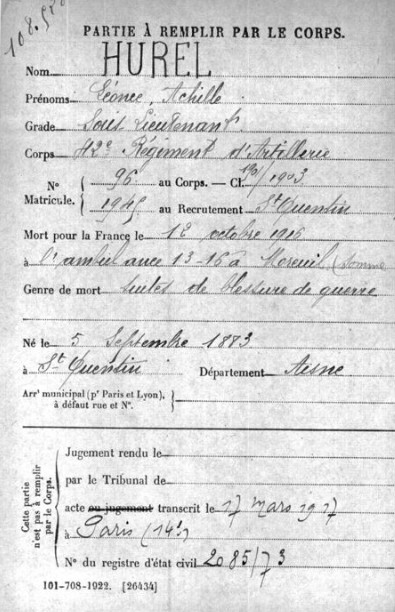 108.500
PARTIE À REMPLIR PAR LE CORPS.
Nom HUREL
Prénoms Léonce, Achille
Grade Sous-Lieutenant
Corps 42e Régiment d'Artillerie
N° 96 au Corps. — Cl. 1903
Matricule. 1945 au Recrutement St Quentin
Mort pour la France le 12 octobre 1916
à l'ambulance 13-16 à Moreuil (Somme
Genre de mort suites de blessure de guerre
Né le 5 Septembre 1883
à St Quentin Département Aisne
Arrt municipal (pr Paris et Lyon), à défaut rue et N°.
Cette partie n'est pas à remplir par le Corps.
Jugement rendu le
par le Tribunal de
acte ou jugement transcrit le 17 mars 1917
à Paris (14e)
N° du registre d'état civil 2085/73
101-708-1922. [26434]